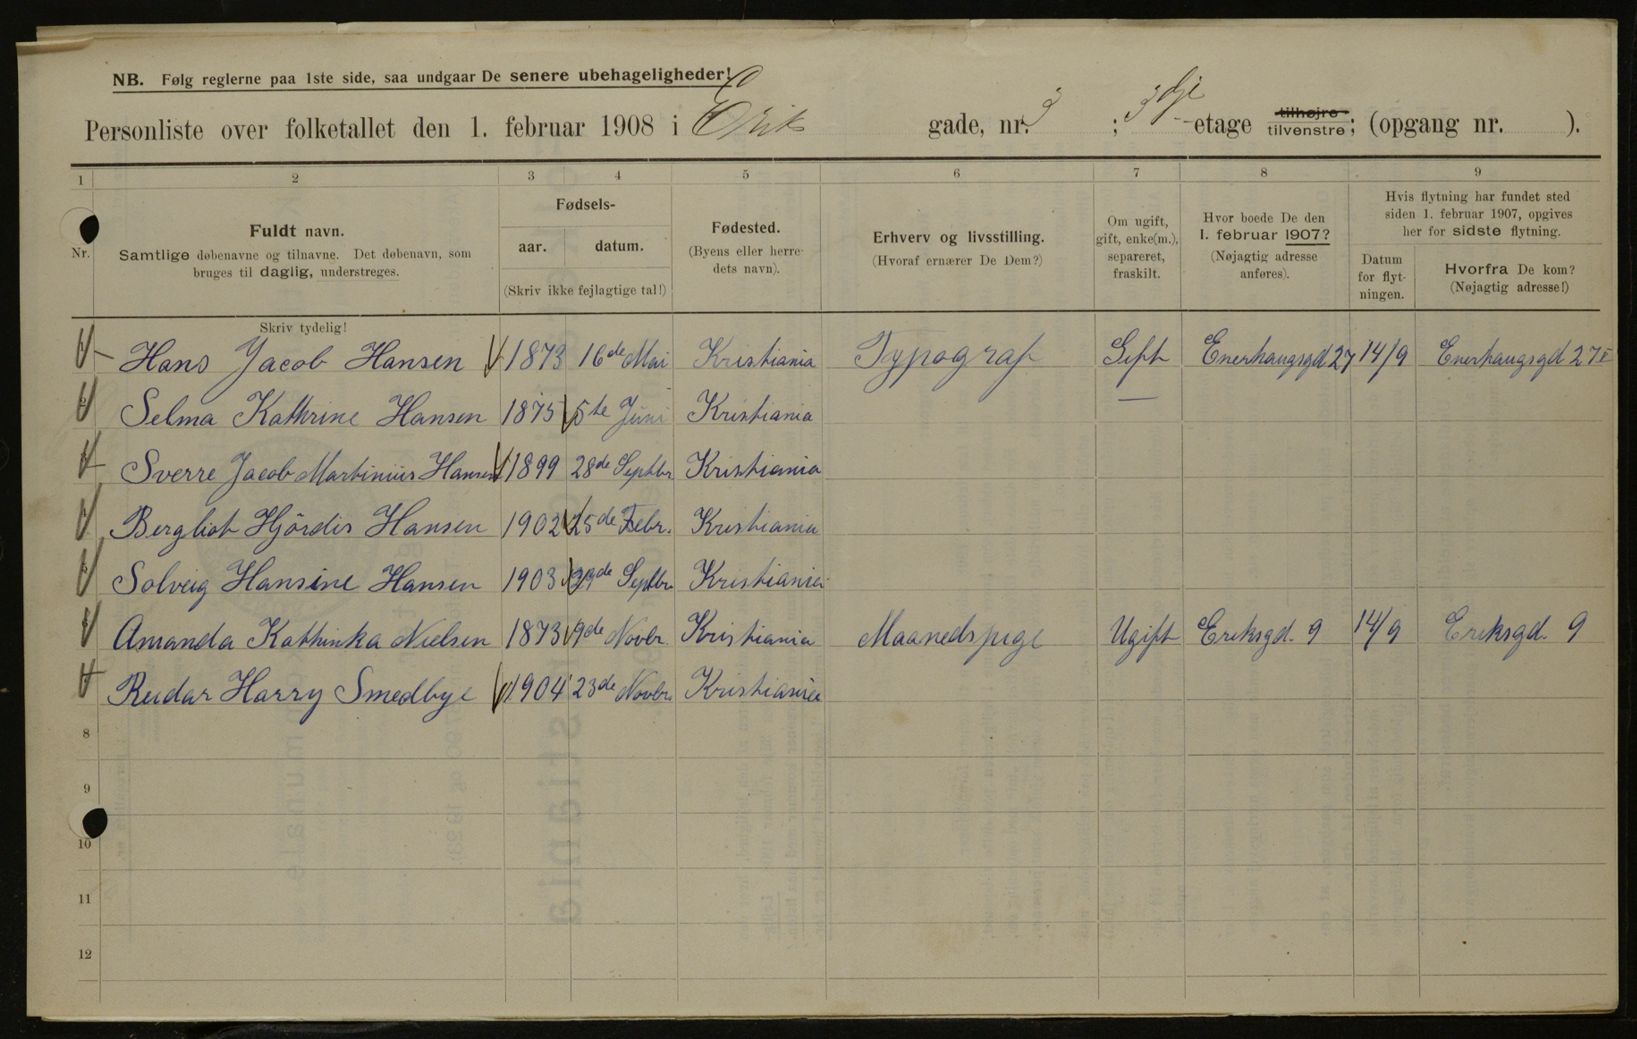 NB. Følg reglerne paa 1ste side, saa undgaar De senere ubehageligheder!
Personliste over folketallet den 1. februar 1908 i Erik gade, nr. 3 ; 3dje etage tilhøjre tilvenstre; (opgang nr. ).
1 2 3 4 5 6 7 8 9
Nr.
Fuldt navn.
Samtlige døbenavne og tilnavne. Det døbenavn, som
bruges til daglig, understreges.
Skriv tydelig!
Fødsels-
aar. datum.
(Skriv ikke fejlagtige tal!)
Fødested.
(Byens eller herre-
dets navn).
Erhverv og livsstilling.
(Hvoraf ernærer De Dem?)
Om ugift,
gift, enke(m.),
separeret,
fraskilt.
Hvor boede De den
1. februar 1907?
(Nøjagtig adresse
anføres).
Hvis flytning har fundet sted
siden 1. februar 1907, opgives
her for sidste flytning.
Datum
for flyt-
ningen.
Hvorfra De kom?
(Nøjagtig adresse!)
Hans Jacob Hansen 1873 16de Mai Kristiania Typograf Gift Enerhaugsgd 27 14/9 Enerhaugsgd 27 I
Selma Kathrine Hansen 1875 5te Juni Kristiania —
Sverre Jacob Martinius Hansen 1899 28de Septbr Kristiania
Bergliot Hjördis Hansen 1902 25de Febr. Kristiania
Solveig Hansine Hansen 1903 29de Septbr Kristiania
Amanda Kathinka Nielsen 1873 9de Novbr. Kristiania Maanedspige Ugift Eriksgd. 9 14/9 Eriksgd. 9
Reidar Harry Smedbye 1904 23de Novbr Kristiania
8
9
10
11
12